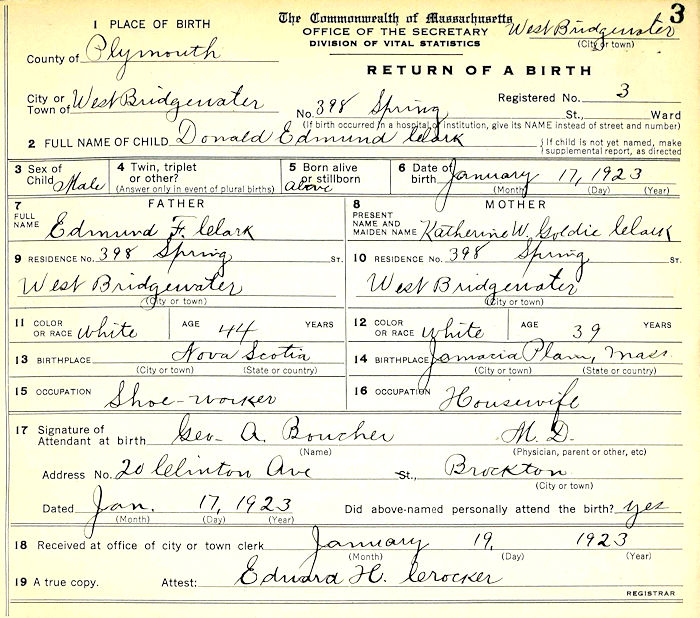 3
1 PLACE OF BIRTH The Commonwealth of Massachusetts West Bridgewater
OFFICE OF THE SECRETARY (City or town)
County of Plymouth DIVISION OF VITAL STATISTICS
RETURN OF A BIRTH
City or Town of West Bridgewater Registered No. 3
No. 398 Spring St., Ward
(If birth occurred in a hospital or institution, give its NAME instead of street and number)
2 FULL NAME OF CHILD Donald Edmund Clark { If child is not yet named, make supplemental report, as directed
3 Sex of Child Male 4 Twin, triplet or other? (Answer only in event of plural births) 5 Born alive or stillborn alive 6 Date of birth January 17, 1923
(Month) (Day) (Year)
7 FATHER 8 MOTHER
FULL NAME Edmund F. Clark PRESENT NAME AND MAIDEN NAME Katherine W. Goldie Clark
9 RESIDENCE No. 398 Spring ST. 10 RESIDENCE No. 398 Spring ST.
West Bridgewater West Bridgewater
(City or town) (City or town)
11 COLOR OR RACE White AGE 44 YEARS 12 COLOR OR RACE White AGE 39 YEARS
13 BIRTHPLACE Nova Scotia 14 BIRTHPLACE Jamacia Plain, Mass.
(City or town) (State or country) (City or town) (State or country)
15 OCCUPATION Shoe-worker 16 OCCUPATION Housewife
17 Signature of Attendant at birth Geo. A. Boucher M. D.
(Name) (Physician, parent or other, etc)
Address No. 20 Clinton Ave St., Brockton
(City or town)
Dated Jan. 17, 1923 Did above-named personally attend the birth? yes
(Month) (Day) (Year)
18 Received at office of city or town clerk January 19, 1923
(Month) (Day) (Year)
19 A true copy. Attest: Edward H. Crocker
REGISTRAR